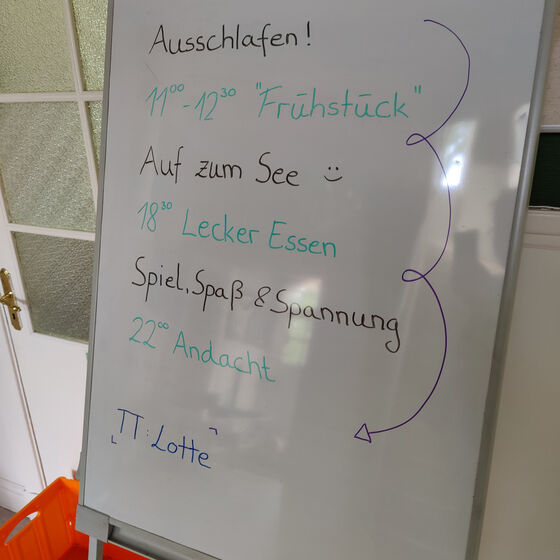 Ausschlafen!
11⁰⁰-12³⁰ "Frühstück"
Auf zum See :)
18³⁰ Lecker Essen
Spiel, Spaß & Spannung
22⁰⁰ Andacht
TT: Lotte